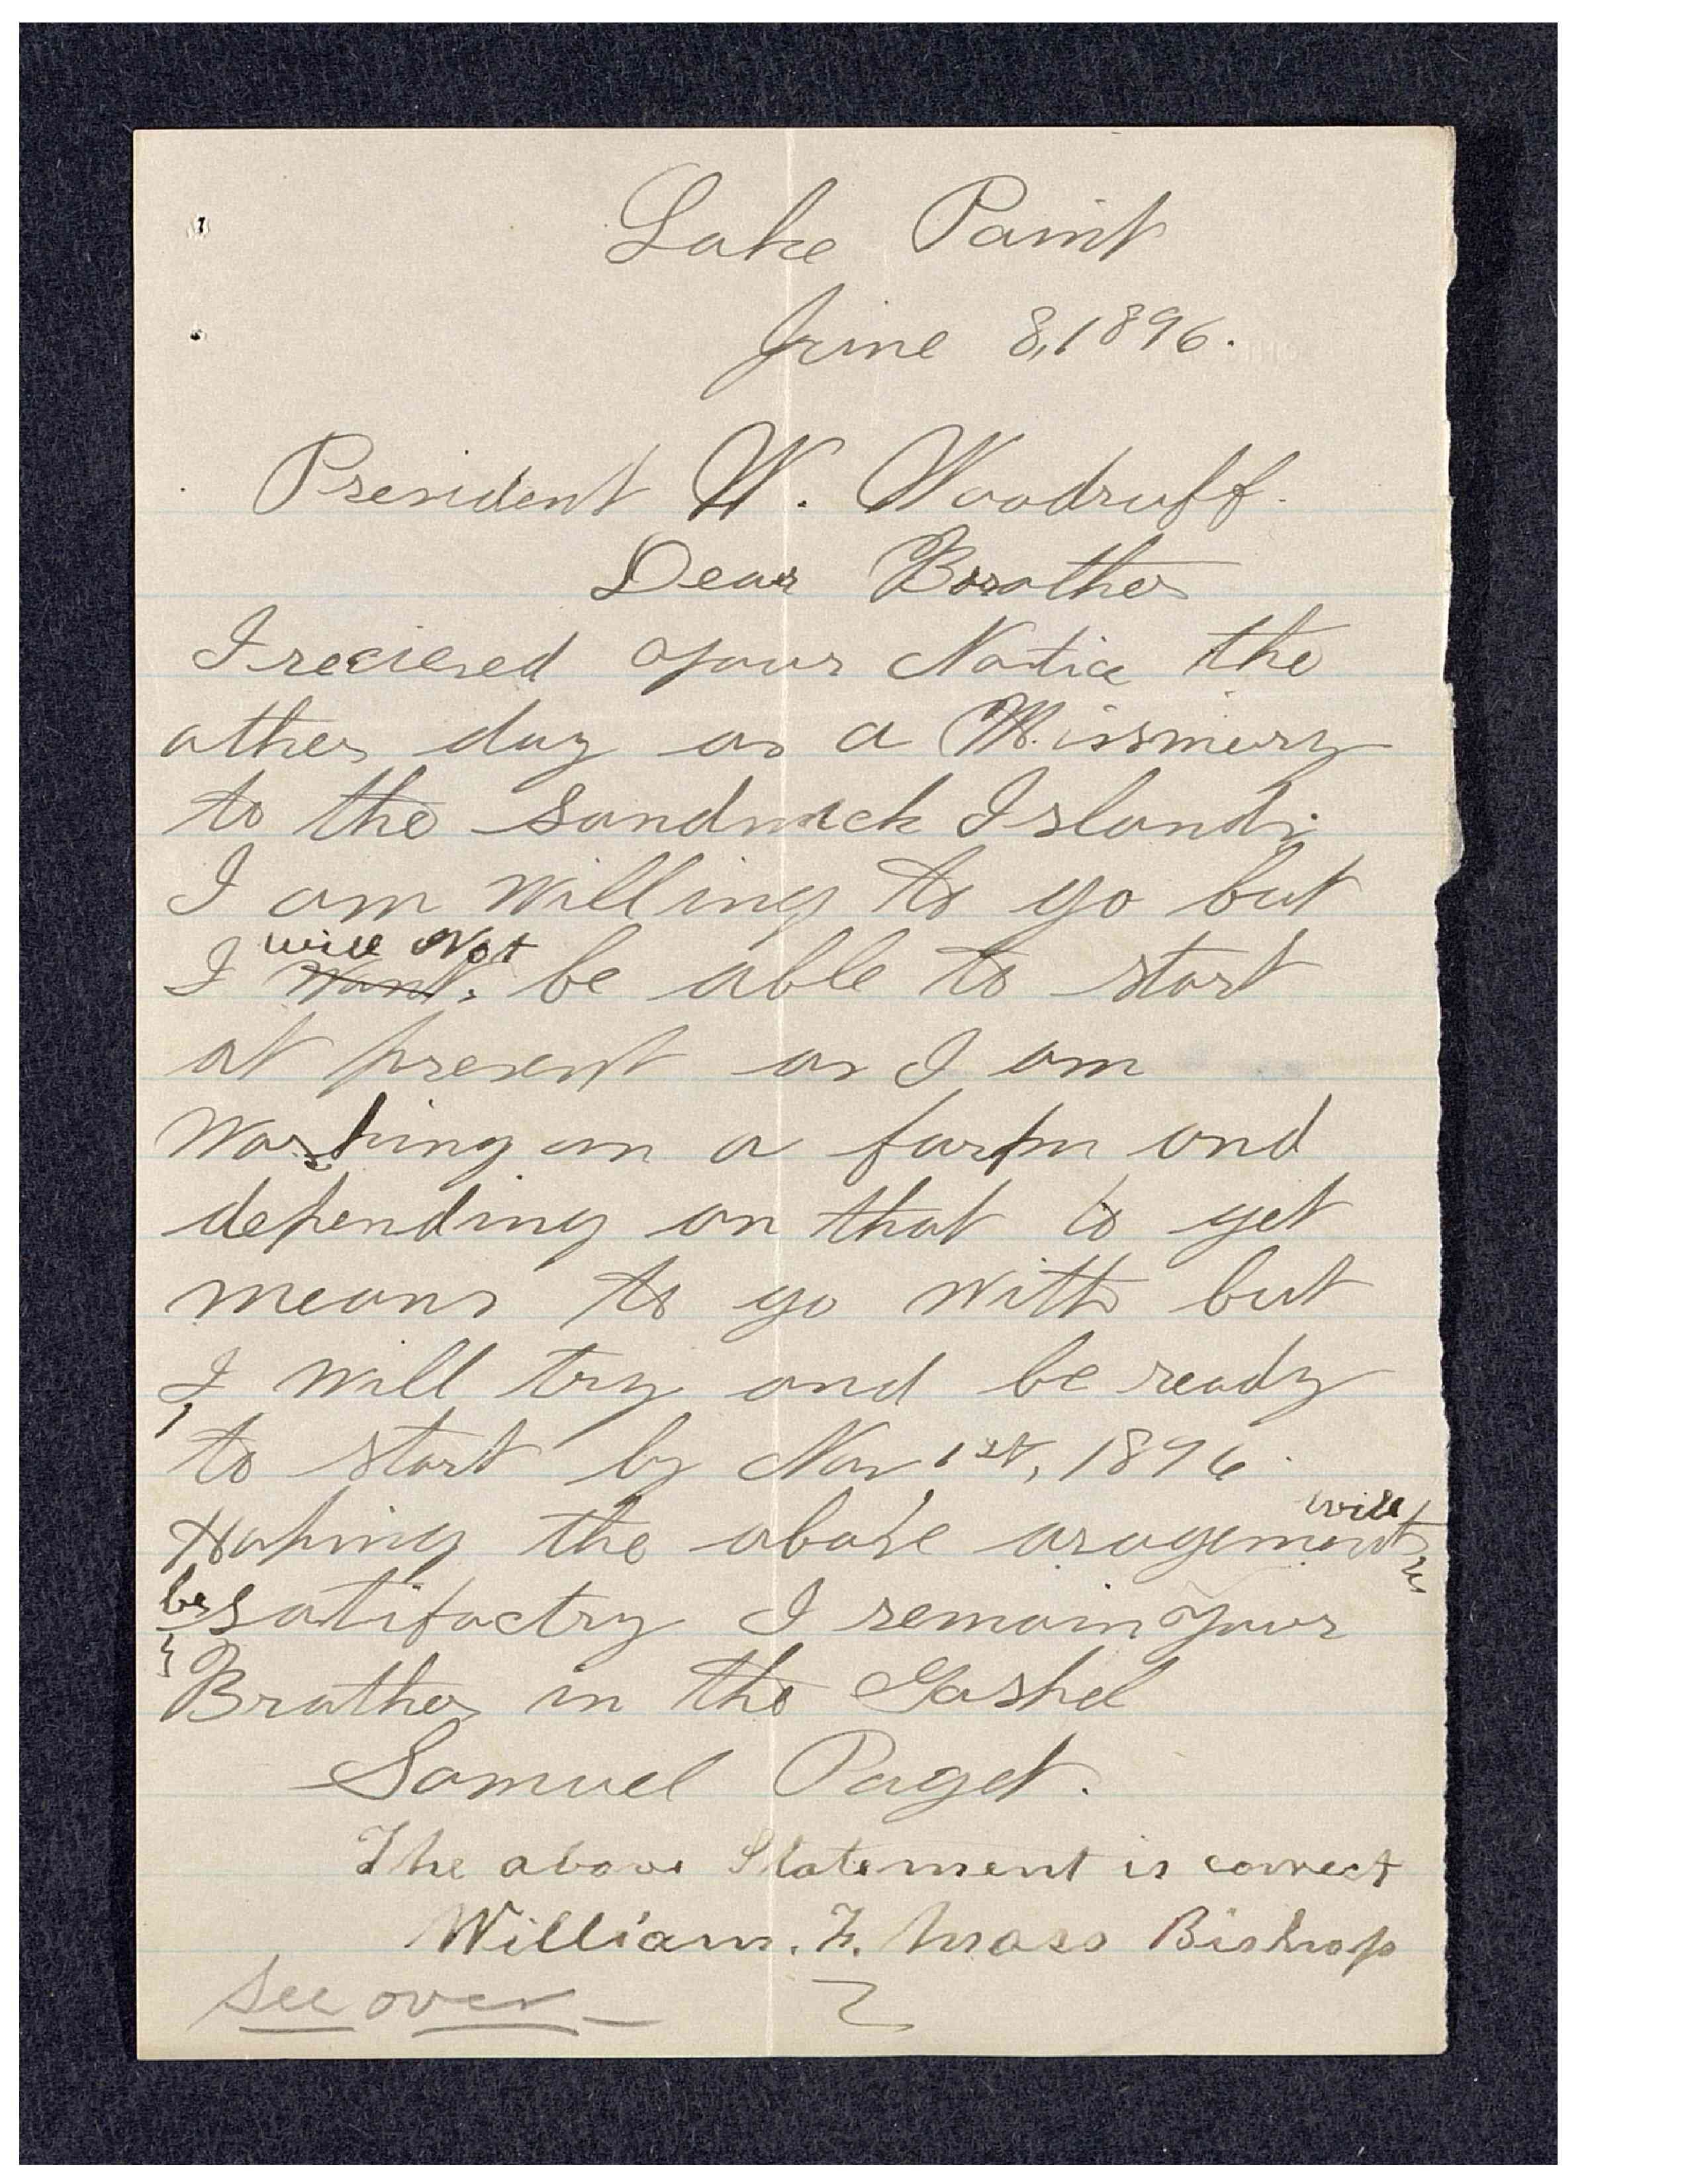 Lake Point
June 8, 1896.
President W. Woodruff.
Dear Brother
I recieved your Notice the
other day as a Missinery
to the Sandwick Islands.
I am willing to go but
will Not
I Want, be able to start
at present as I am
Working on a farm and
depending on that to get
means to go with but
I will try and be ready
to start by Nov 1st, 1896.
will
Hoping the above aragement
be satifactry I remain your
Brother in the Gospel
Samuel Paget.
The above Statement is correct
William. F. Moss Bishop
See over